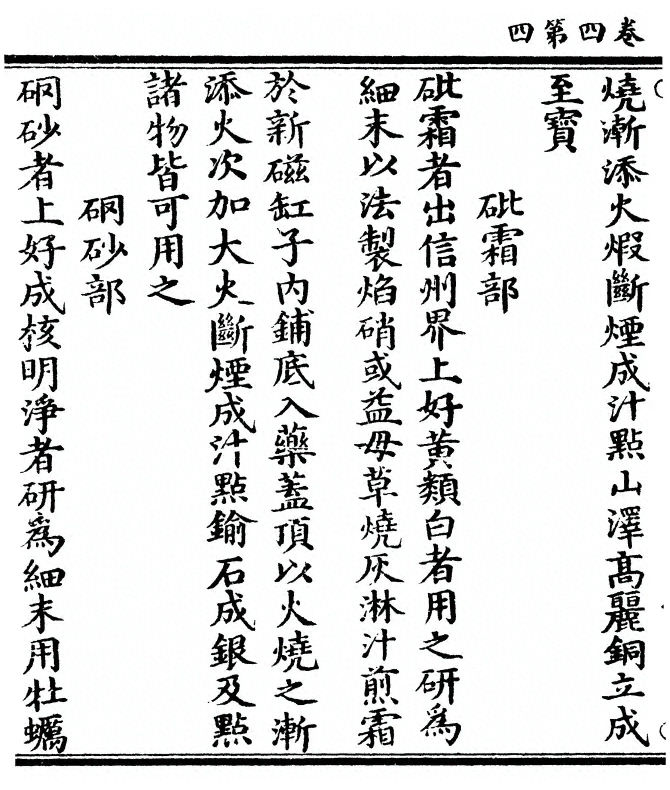 四第四卷
燒漸添火煆斷煙成汁點山澤高麗銅立成
至寶
砒霜部
砒霜者出信州界上好黃類白者用之研為
細末以法製焰硝或益母草燒灰淋汁煎霜
於新磁缸子內鋪底入藥蓋頂以火燒之漸
添火次加大火斷煙成汁點鍮石成銀及點
諸物皆可用之
硇砂部
硇砂者上好成核明淨者研為細末用牡蠣